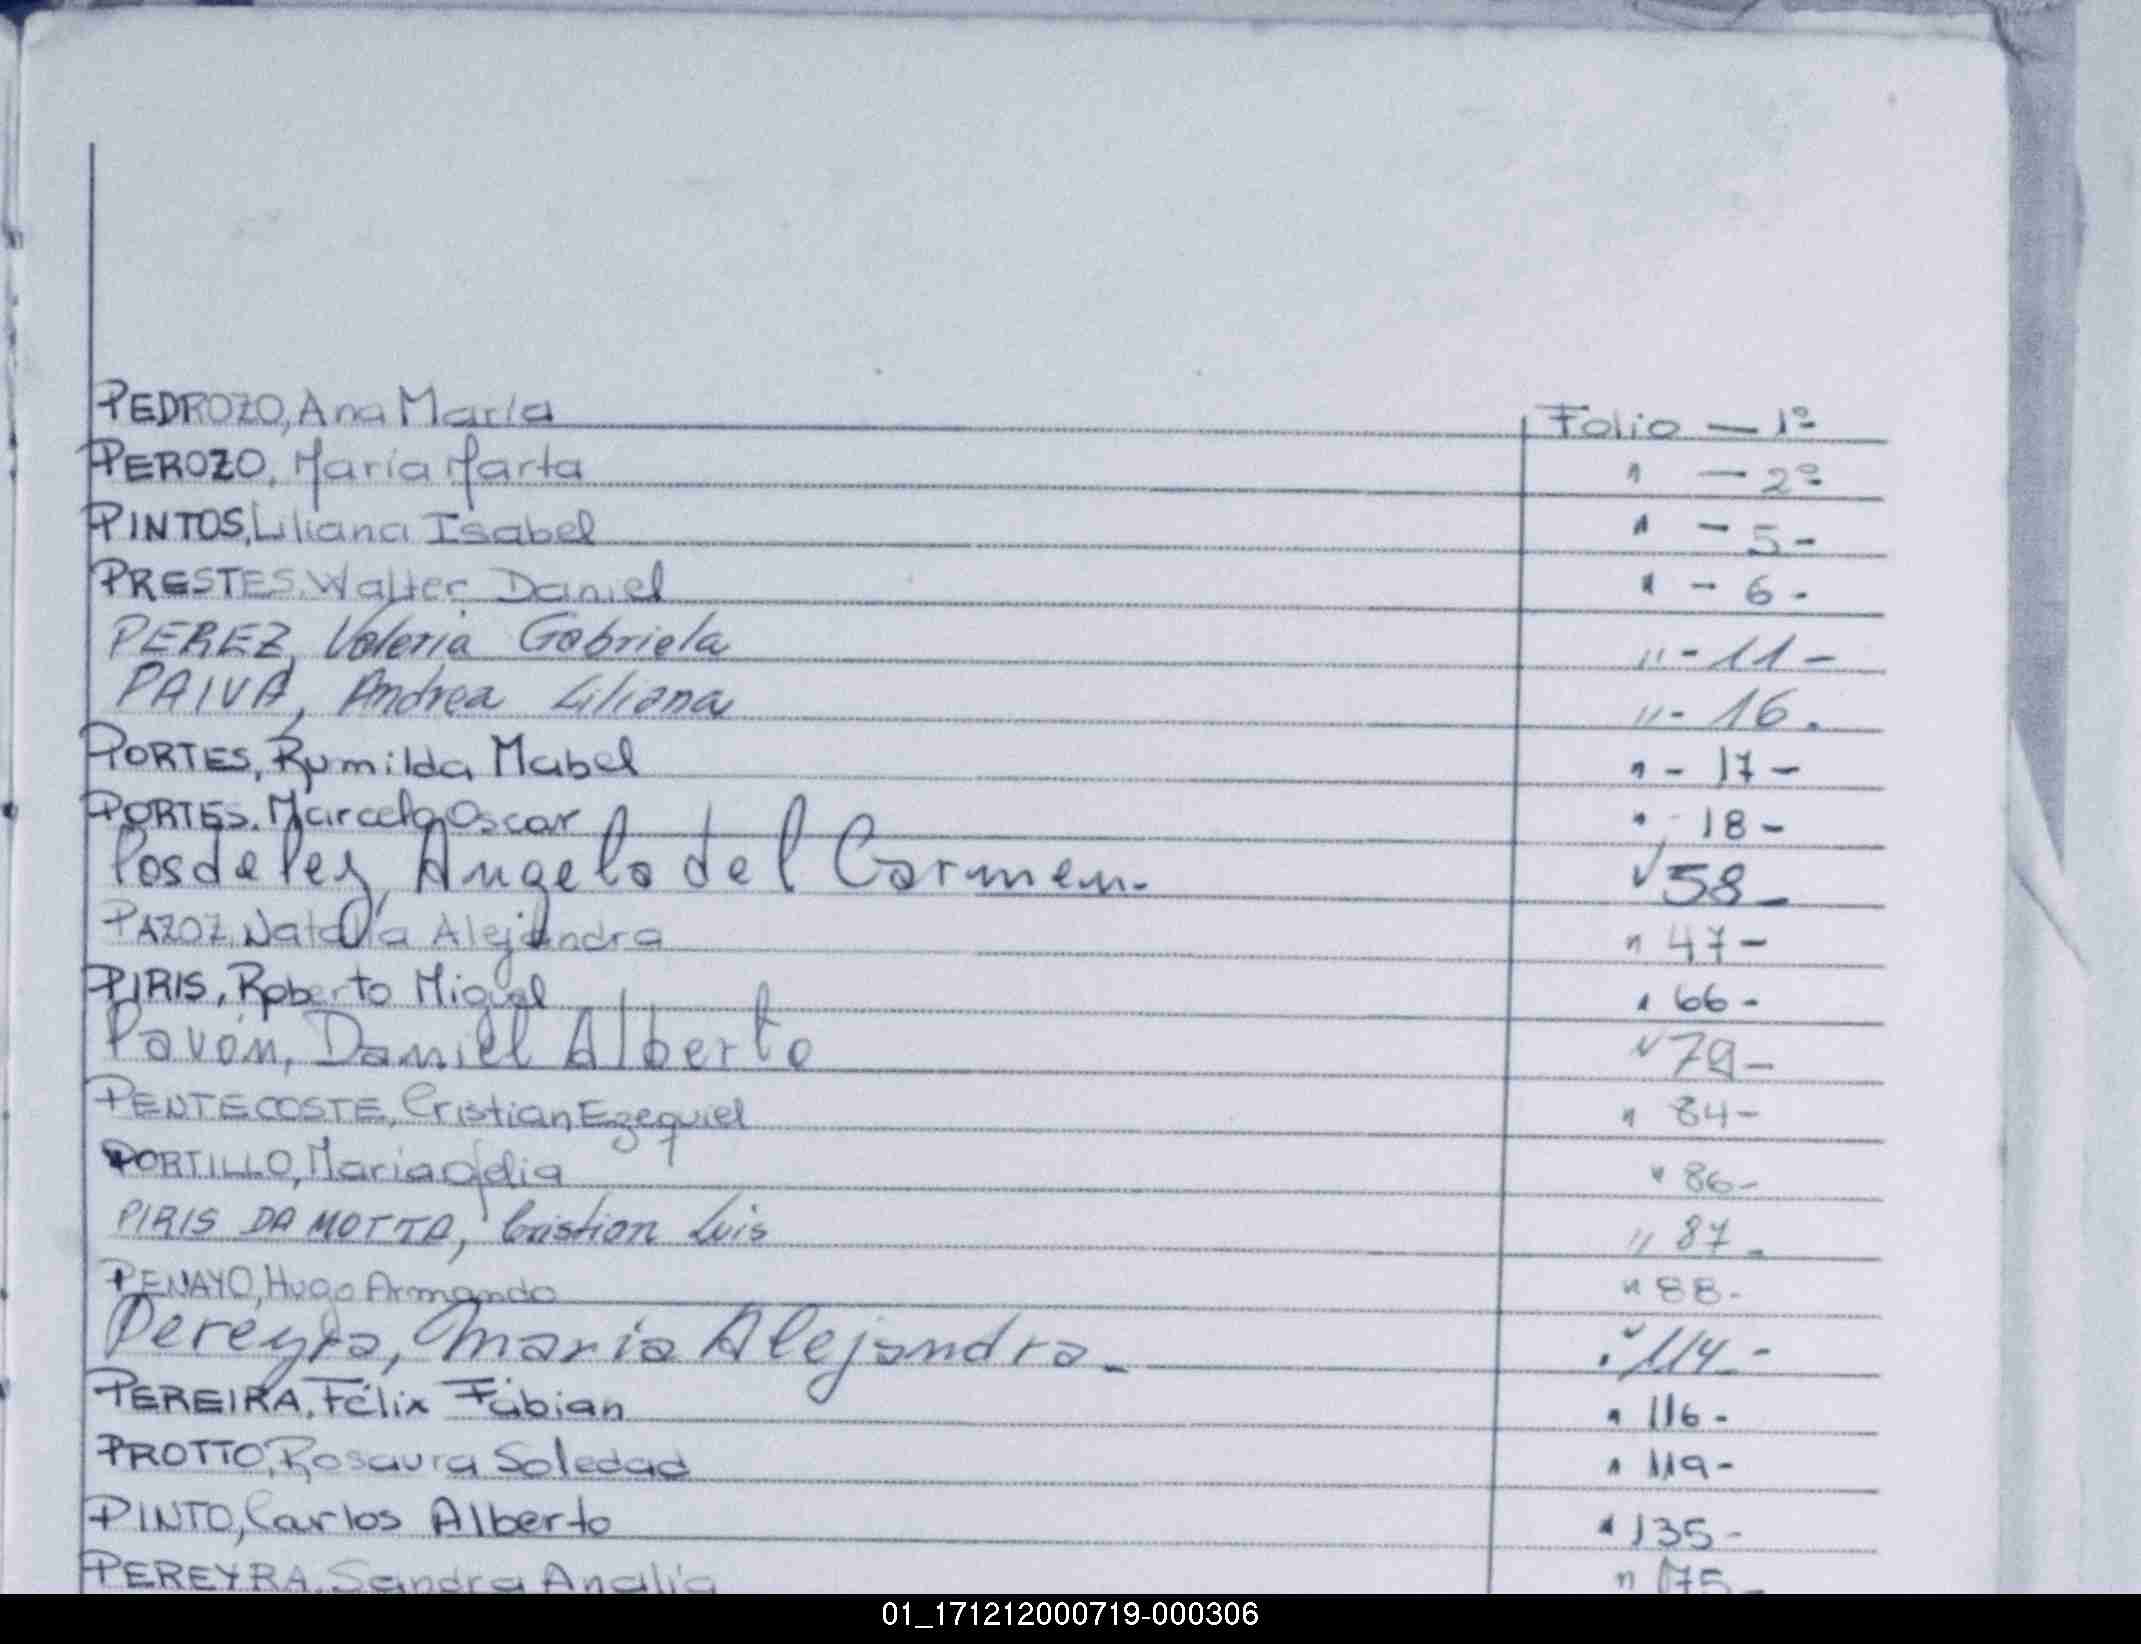 PEDROZO, Ana María Folio — 1º
PEROZO, María Marta " — 2º
PINTOS, Liliana Isabel " - 5 -
PRESTES, Walter Daniel " - 6 -
PEREZ, Valeria Gabriela " - 11 -
PAIVA, Andrea Liliana " - 16.
PORTES, Rumilda Mabel " - 17 -
PORTES, Marcelo Oscar " - 18 -
Posdeley, Angela del Carmen. " 58 -
PAZOZ, Natalia Alejandra " 47 -
PIRIS, Roberto Miguel " 66 -
Pavón, Daniel Alberto " 79 -
PENTECOSTE, Cristian Ezequiel " 84 -
PORTILLO, María Odelia " 86 -
PIRIS DA MOTTA, Cristian Luis " 87 -
PENAYO, Hugo Armando " 88 -
Pereyra, María Alejandra. " 114 -
PEREIRA, Félix Fabian " 116 -
PROTTO, Rosaura Soledad " 119 -
PINTO, Carlos Alberto " 135 -
PEREYRA, Sandra Analía " 175 -
01_171212000719-000306